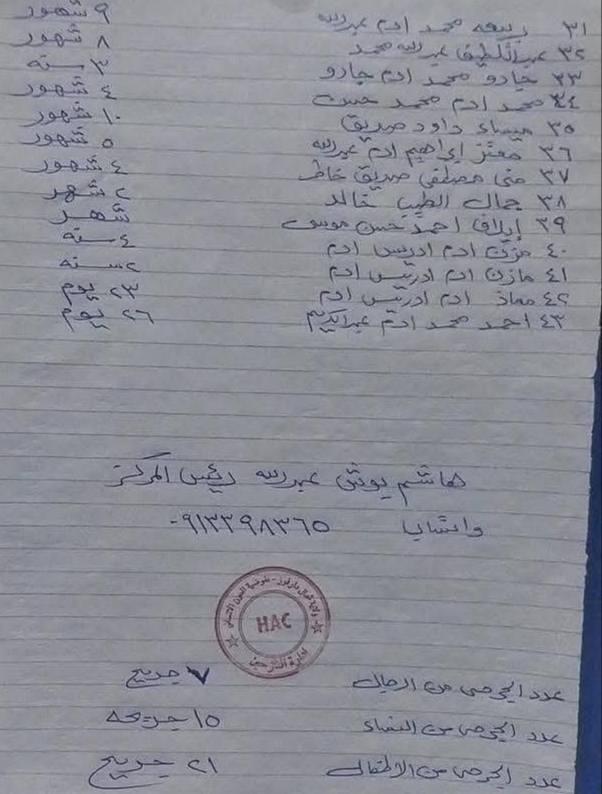 ٣١ ربيعه محمد ادم عبدالله ٩ شهور
٣٢ عبداللطيف عبدالله محمد ٨ شهور
٣٣ جادو محمد ادم جادو ٣ سنه
٣٤ محمد ادم محمد حسن ٤ شهور
٣٥ ميساء داود صديق ١٠ شهور
٣٦ معتز ابراهيم ادم عبدالله ٥ شهور
٣٧ منى مصطفى صديق خاطر ٤ شهور
٣٨ جمال الطيب خالد ٢ شهر
٣٩ إيلاف احمد حسن موسى شهر
٤٠ مزن ادم ادريس ادم ٤ سنه
٤١ مازن ادم ادريس ادم ٢ سنه
٤٢ معاذ ادم ادريس ادم ٢٣ يوم
٤٣ احمد محمد ادم عبدالكريم ٢٦ يوم
هاشم بوش عبدالله رئيس المركز
واتساب ٠٩١٢٣٩٨٣٦٥
ولاية شمال دارفور - مفوضية العون الانساني
HAC
عدد الجرحى من الرجال ٧ جريح
عدد الجرحى من النساء ١٥ جريحه
عدد الجرحى من الاطفال ٢١ جريح